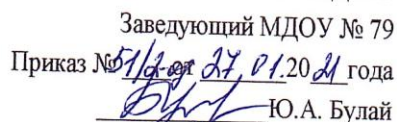 Заведующий МДОУ № 79
Приказ № 51/2 от 27.01.2021 года
Ю.А. Булай